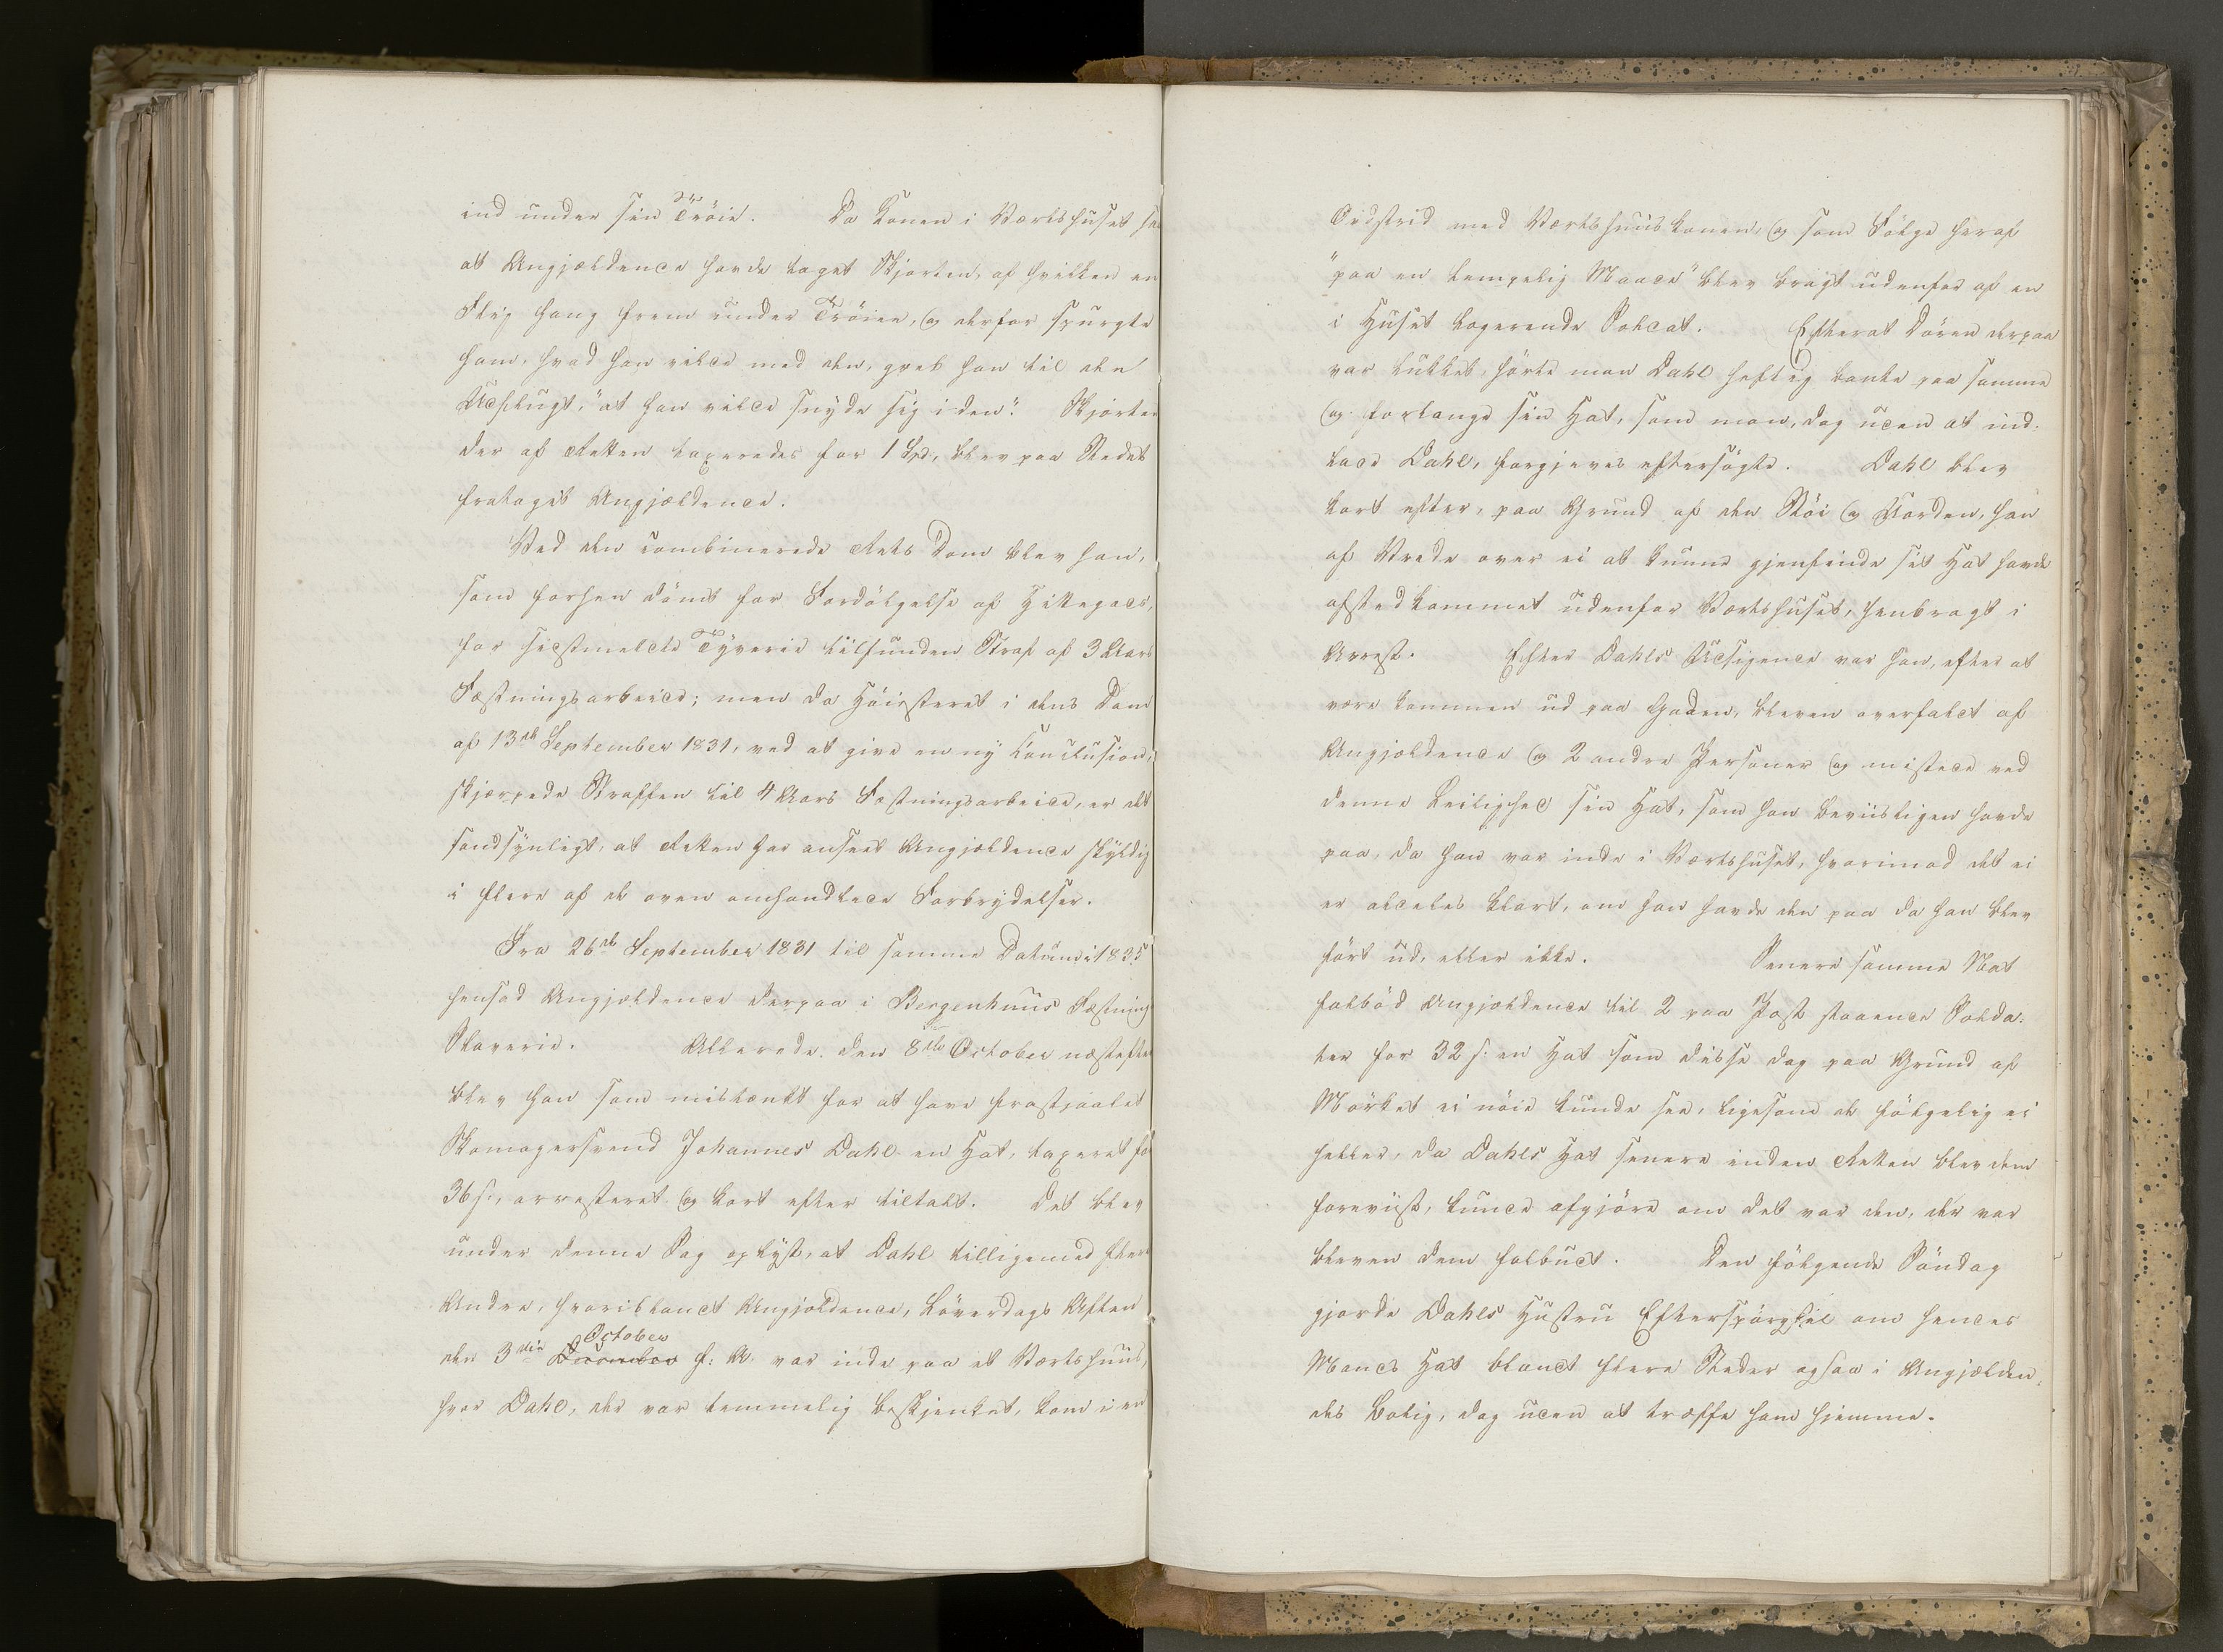 ind under sin Tröie. Da Konen i Værtshuset saa
at Angjældende havde taget Skjorten, af hvilken en
Flig hang frem under Tröien, og derfor spurgte
ham, hvad han vilde med den, greb han til den
Udflugt, "at han vilde snyde sig i den". Skjorten
der af Retten taxeredes for 1 Spd, blev paa Stedet
frataget Angjældende.
Ved den combinerede Rets Dom blev han,
som forhen dömt for Fordölgelse af Hittegods,
for sidstmeldte Tyverie tilfunden Straf af 3 Aars
Fæstningsarbeide; men da Höiesteret i dens Dom
af 13de September 1831, ved at give en ny Conclusion,
skjærpede Straffen til 4 Aars Fæstningsarbeide, er det
sandsynligt, at Retten har anseet Angjældende skyldig
i flere af de oven omhandlede Forbrydelser.
Fra 26de September 1831 til samme Datum i 1835
hensad Angjældende derpaa i Bergenhuus Fæstnings
Slaverie. Allerede den 8de October næstefter
blev han som mistænkt for at have frastjaalet
Skomagersvend Johannes Dahl en Hat, taxeret for
36 s, arresteret og kort efter tiltalt. Det blev
under denne Sag oplyst, at Dahl tilligemed flere
Andre, hvoriblandt Angjældende, Löverdags Aften
October
den 3die December f: A. var inde paa et Værtshuus,
hvor Dahl, der var temmelig beskjenket, kom i en
Ordstrid med Værtshuuskonen, og som Fölge heraf
"paa en lempelig Maade" blev bragt udenfor af en
i Huset logerende Soldat. Efterat Dören derpaa
var lukket, hörte man Dahl heftig banke paa samme
og forlange sin Hat, som man, dog uden at ind:
lade Dahl, forgjeves eftersögte. Dahl blev
kort efter, paa Grund af den Stöi og Uorden, han
af Vrede over ei at kunne gjenfinde sit Hat havde
afstedkommet udenfor Værtshuset, henbragt i
Arrest. Efter Dahls Udsigende var han, efter at
være kommen ud paa Gaden, bleven overfaldt af
Angjældende og 2 andre Personer og mistede ved
denne Leilighed sin Hat, som han beviisligen havde
paa, da han var inde i Værtshuset, hvorimod det ei
er aldeles klart, om han havde den paa da han blev
fört ud, eller ikke. Senere samme Nat
falböd Angjældende til 2 paa Post staaende Solda:
ter for 32 s: en Hat som disse dog paa Grund af
Mörket ei nöie kunde see, ligesom de fölgelig ei
heller, da Dahls Hat senere inden Retten blev dem
foreviist, kunde afgjöre om det var den, der var
bleven dem falbudt. Den fölgende Söndag
gjorde Dahls Hustru Efterspörgsel om hendes
Mands Hat blandt flere Steder ogsaa i Angjælden:
des Bolig, dog uden at træffe ham hjemme.